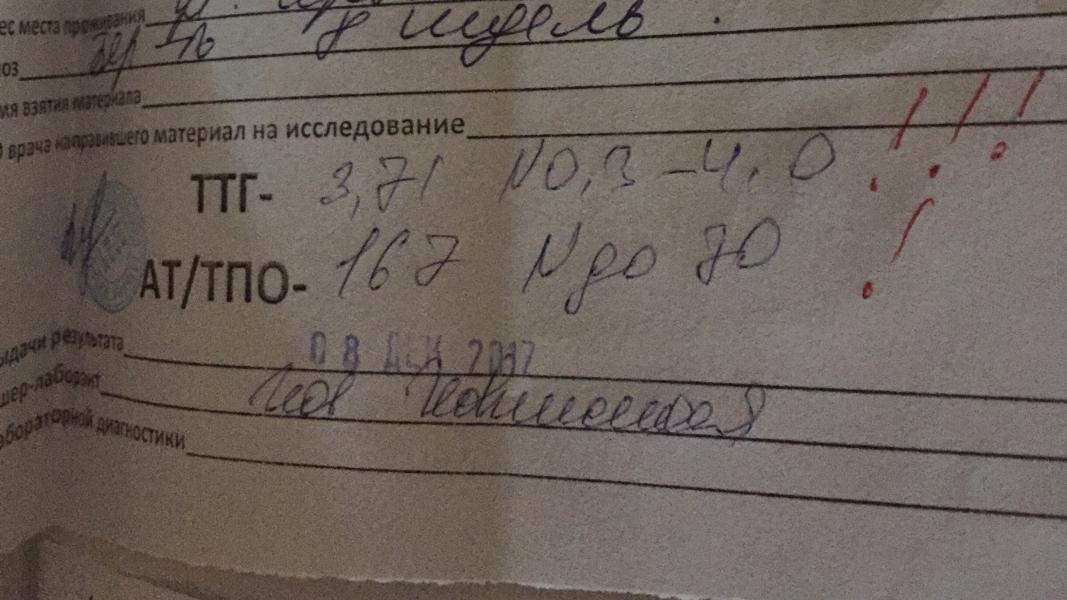 ес места проживания
оз бер 8 недель
ия взятия материала
врача направившего материал на исследование
ТТГ- 3,71 N 0,3-4,0 !!!
АТ/ТПО- 167 N до 70 !
ыдачи результата 08 ДЕК 2017
шер-лаборант
абораторной диагностики